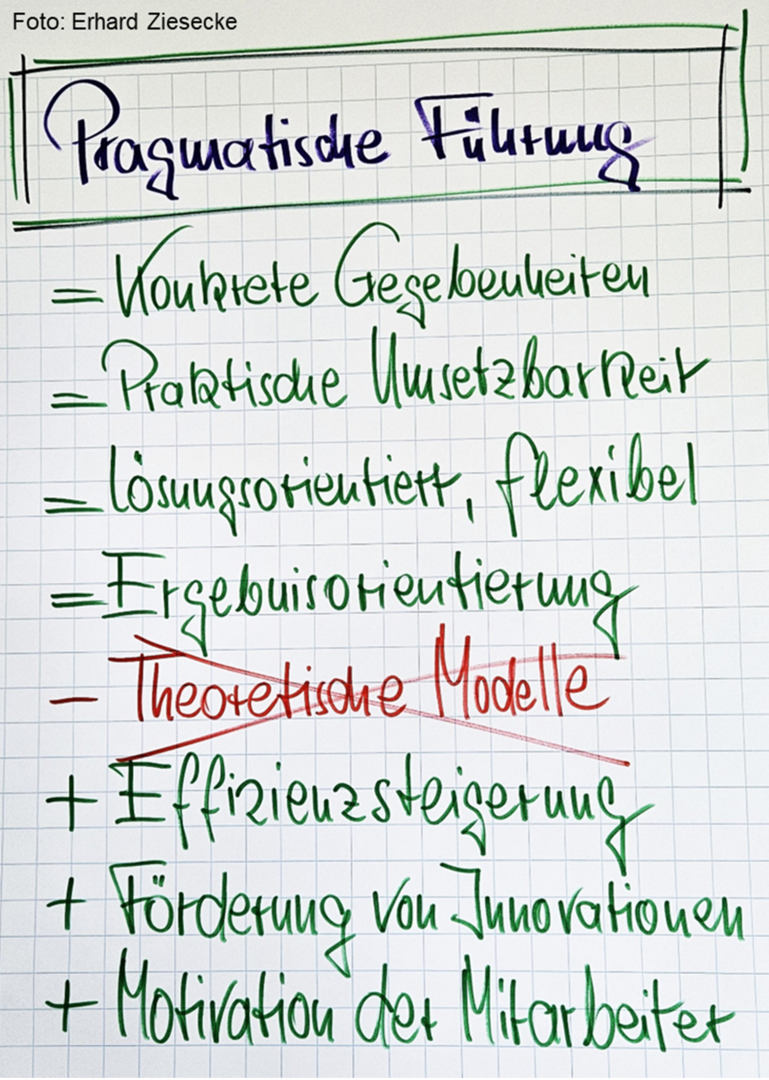 Foto: Erhard Ziesecke
Pragmatische Führung
= Konkrete Gegebenheiten
= Praktische Umsetzbarkeit
= lösungsorientiert, flexibel
= Ergebnisorientierung
- Theoretische Modelle
+ Effizienzsteigerung
+ Förderung von Innovationen
+ Motivation der Mitarbeiter